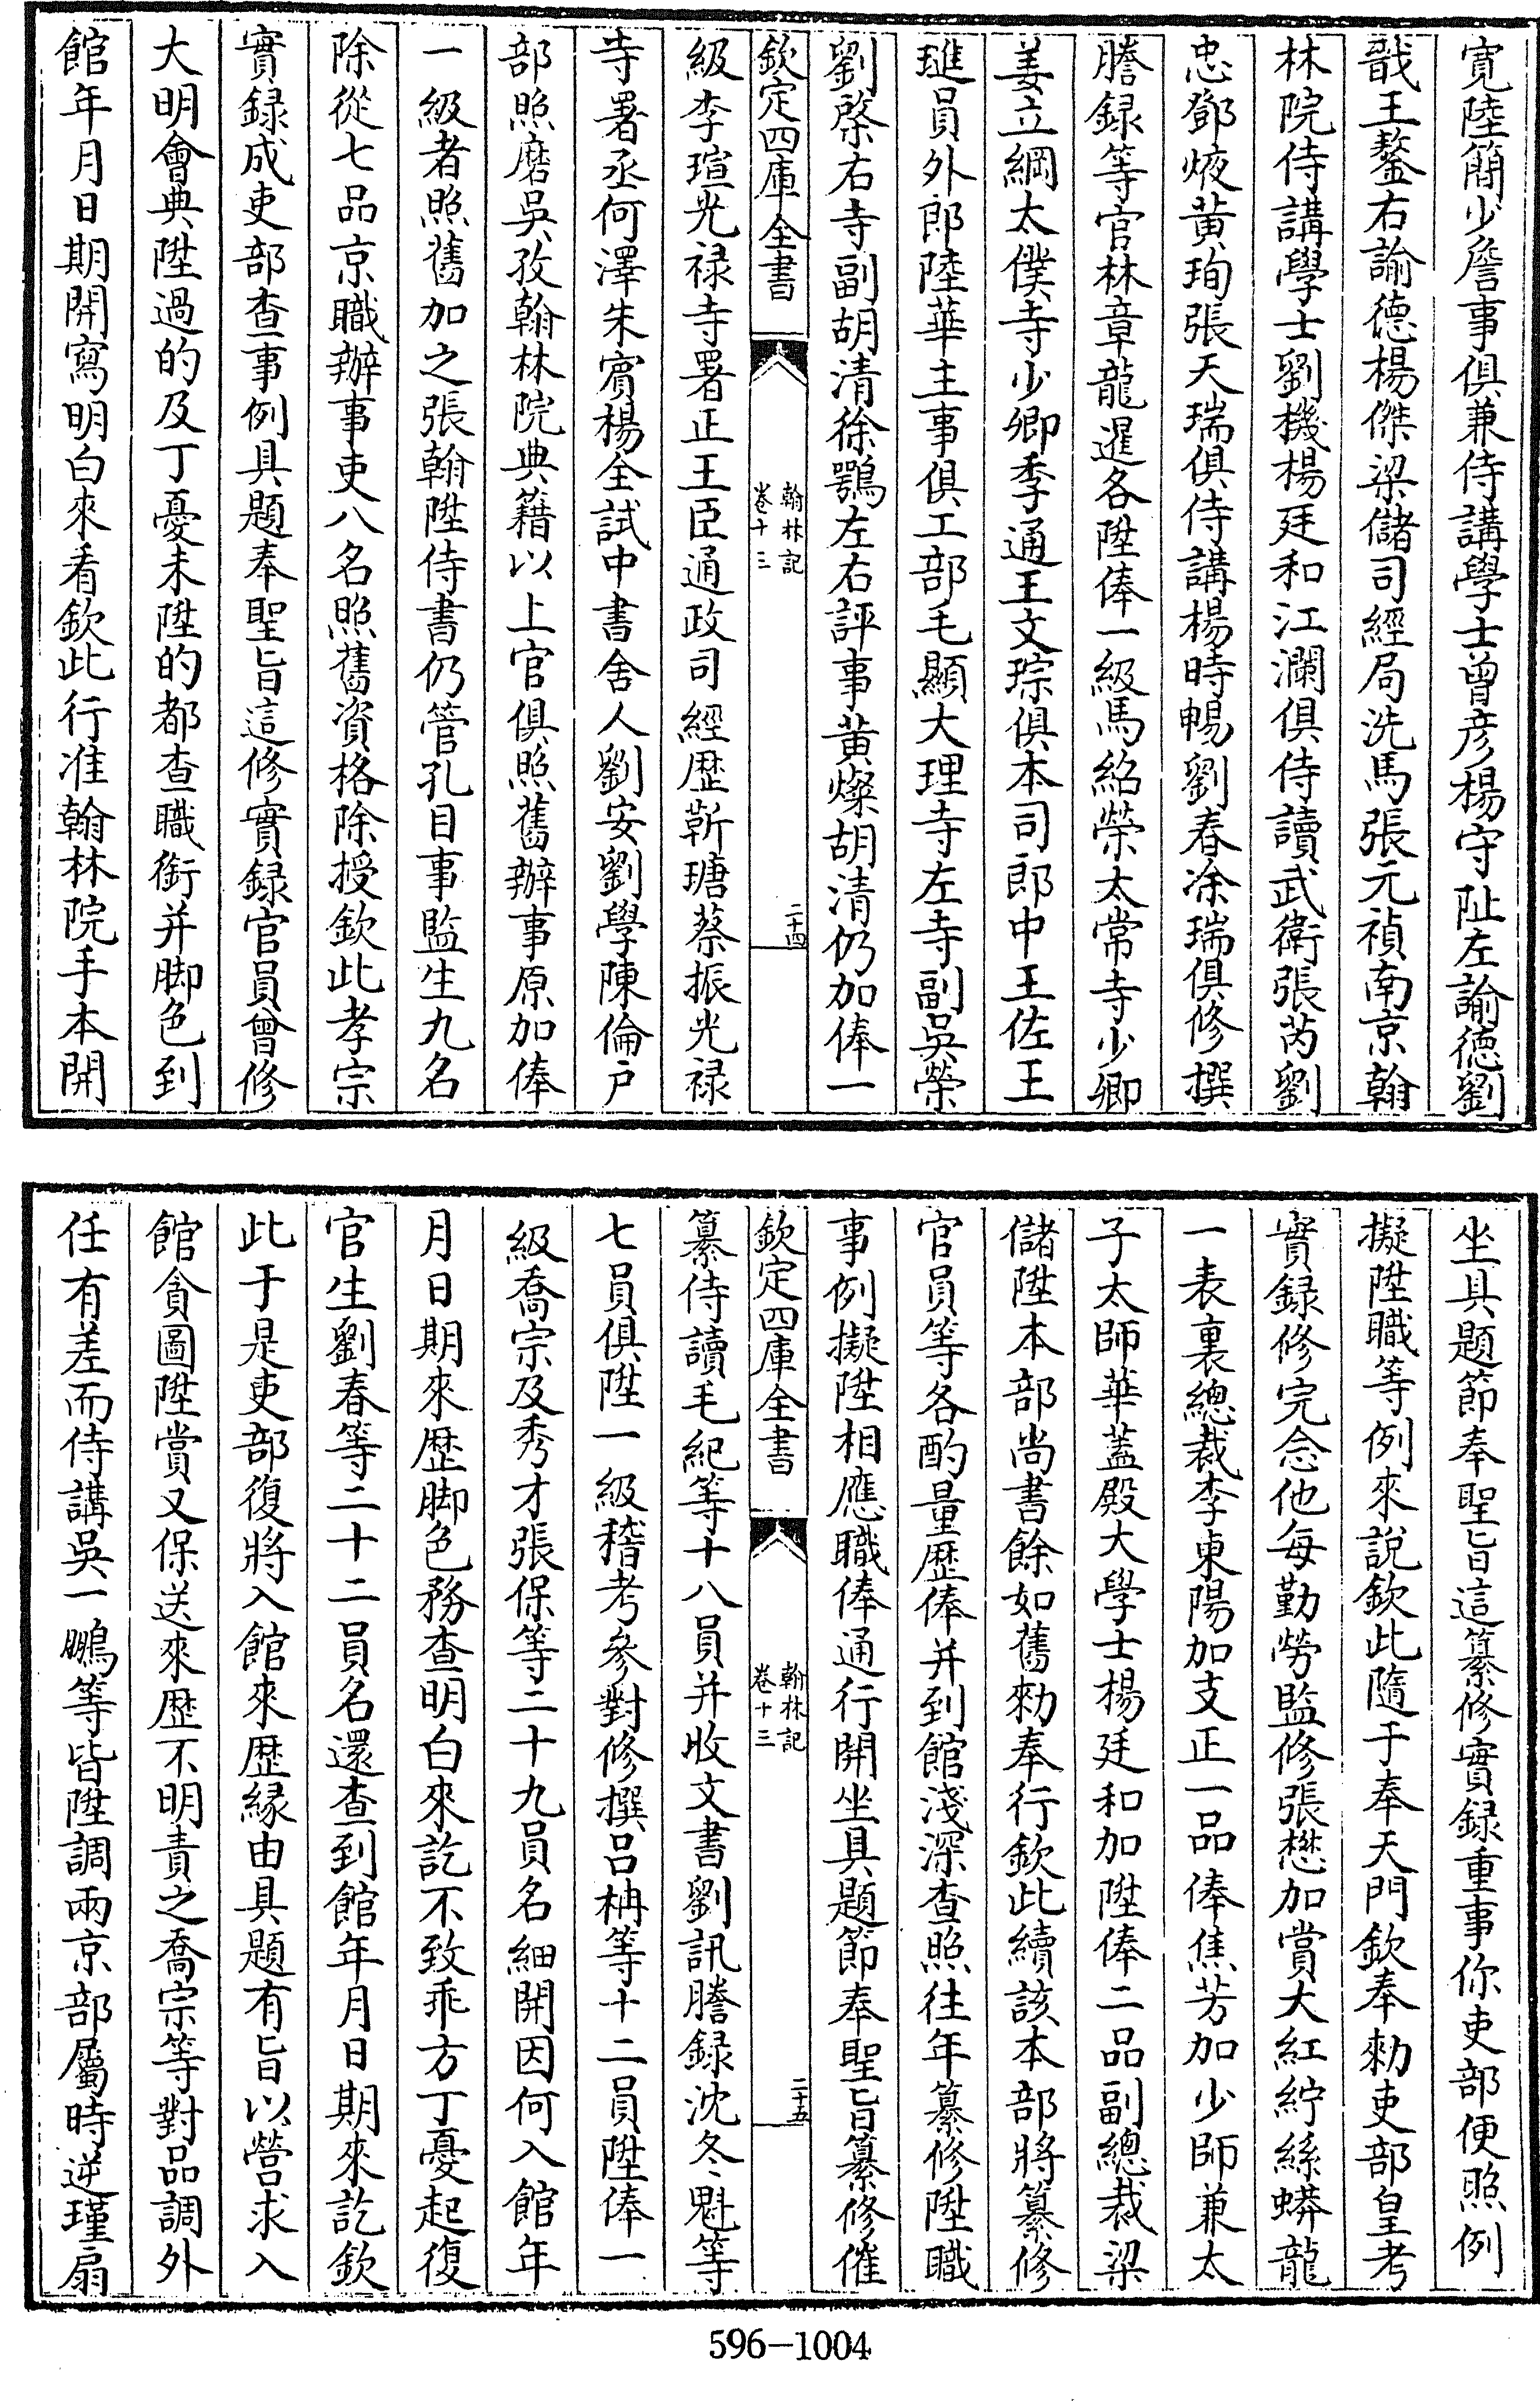 寛陸簡少詹事俱兼侍講學士曾彦楊守阯左諭德劉
戩王鏊右諭德楊傑梁儲司經局洗馬張元禎南京翰
林院侍講學士劉機楊廷和江瀾俱侍讀武衛張芮劉
忠鄧焲黄珣張天瑞俱侍講楊時暢劉春凃瑞俱修撰
謄録等官林章龍暹各陞俸一級馬紹榮太常寺少卿
姜立綱太僕寺少卿季通王文琮俱本司郎中王佐王
璡員外郎陸華主事俱工部毛顯大理寺左寺副吳榮
劉棨右寺副胡清徐鶚左右評事黄燦胡清仍加俸一
欽定四庫全書
翰林記
卷十三
二十四
級李瑄光禄寺署正王臣通政司經歴靳瑭蔡振光禄
寺署丞何澤朱賔楊全試中書舍人劉安劉學陳倫户
部照磨吳孜翰林院典籍以上官俱照舊辦事原加俸
一級者照舊加之張翰陞侍書仍管孔目事監生九名
除從七品京職辦事吏八名照舊資格除授欽此孝宗
實録成吏部查事例具題奉聖旨這修實録官員曾修
大明會典陞過的及丁憂未陞的都查職銜并脚色到
館年月日期開寫明白來看欽此行准翰林院手本開
坐具題節奉聖旨這纂修實録重事你吏部便照例
擬陞職等例來說欽此隨于奉天門欽奉勑吏部皇考
實録修完念他每勤勞監修張懋加賞大紅紵絲蟒龍
一表裏總裁李東陽加支正一品俸焦芳加少師兼太
子太師華蓋殿大學士楊廷和加陞俸二品副總裁梁
儲陞本部尚書餘如舊勑奉行欽此續該本部將纂修
官員等各酌量歴俸并到館淺深查照往年纂修陞職
事例擬陞相應職俸通行開坐具題節奉聖旨纂修催
欽定四庫全書
翰林記
卷十三
二十五
纂侍讀毛紀等十八員并收文書劉訊謄録沈冬魁等
七員俱陞一級稽考參對修撰吕柟等十二員陞俸一
級喬宗及秀才張保等二十九員名細開因何入館年
月日期來歴脚色務查明白來訖不致乖方丁憂起復
官生劉春等二十二員名還查到館年月日期來訖欽
此于是吏部復將入館來歴緣由具題有旨以營求入
館貪圖陞賞又保送來歴不明責之喬宗等對品調外
任有差而侍講吳一鵬等皆陞調兩京部屬時逆瑾扇
596-1004